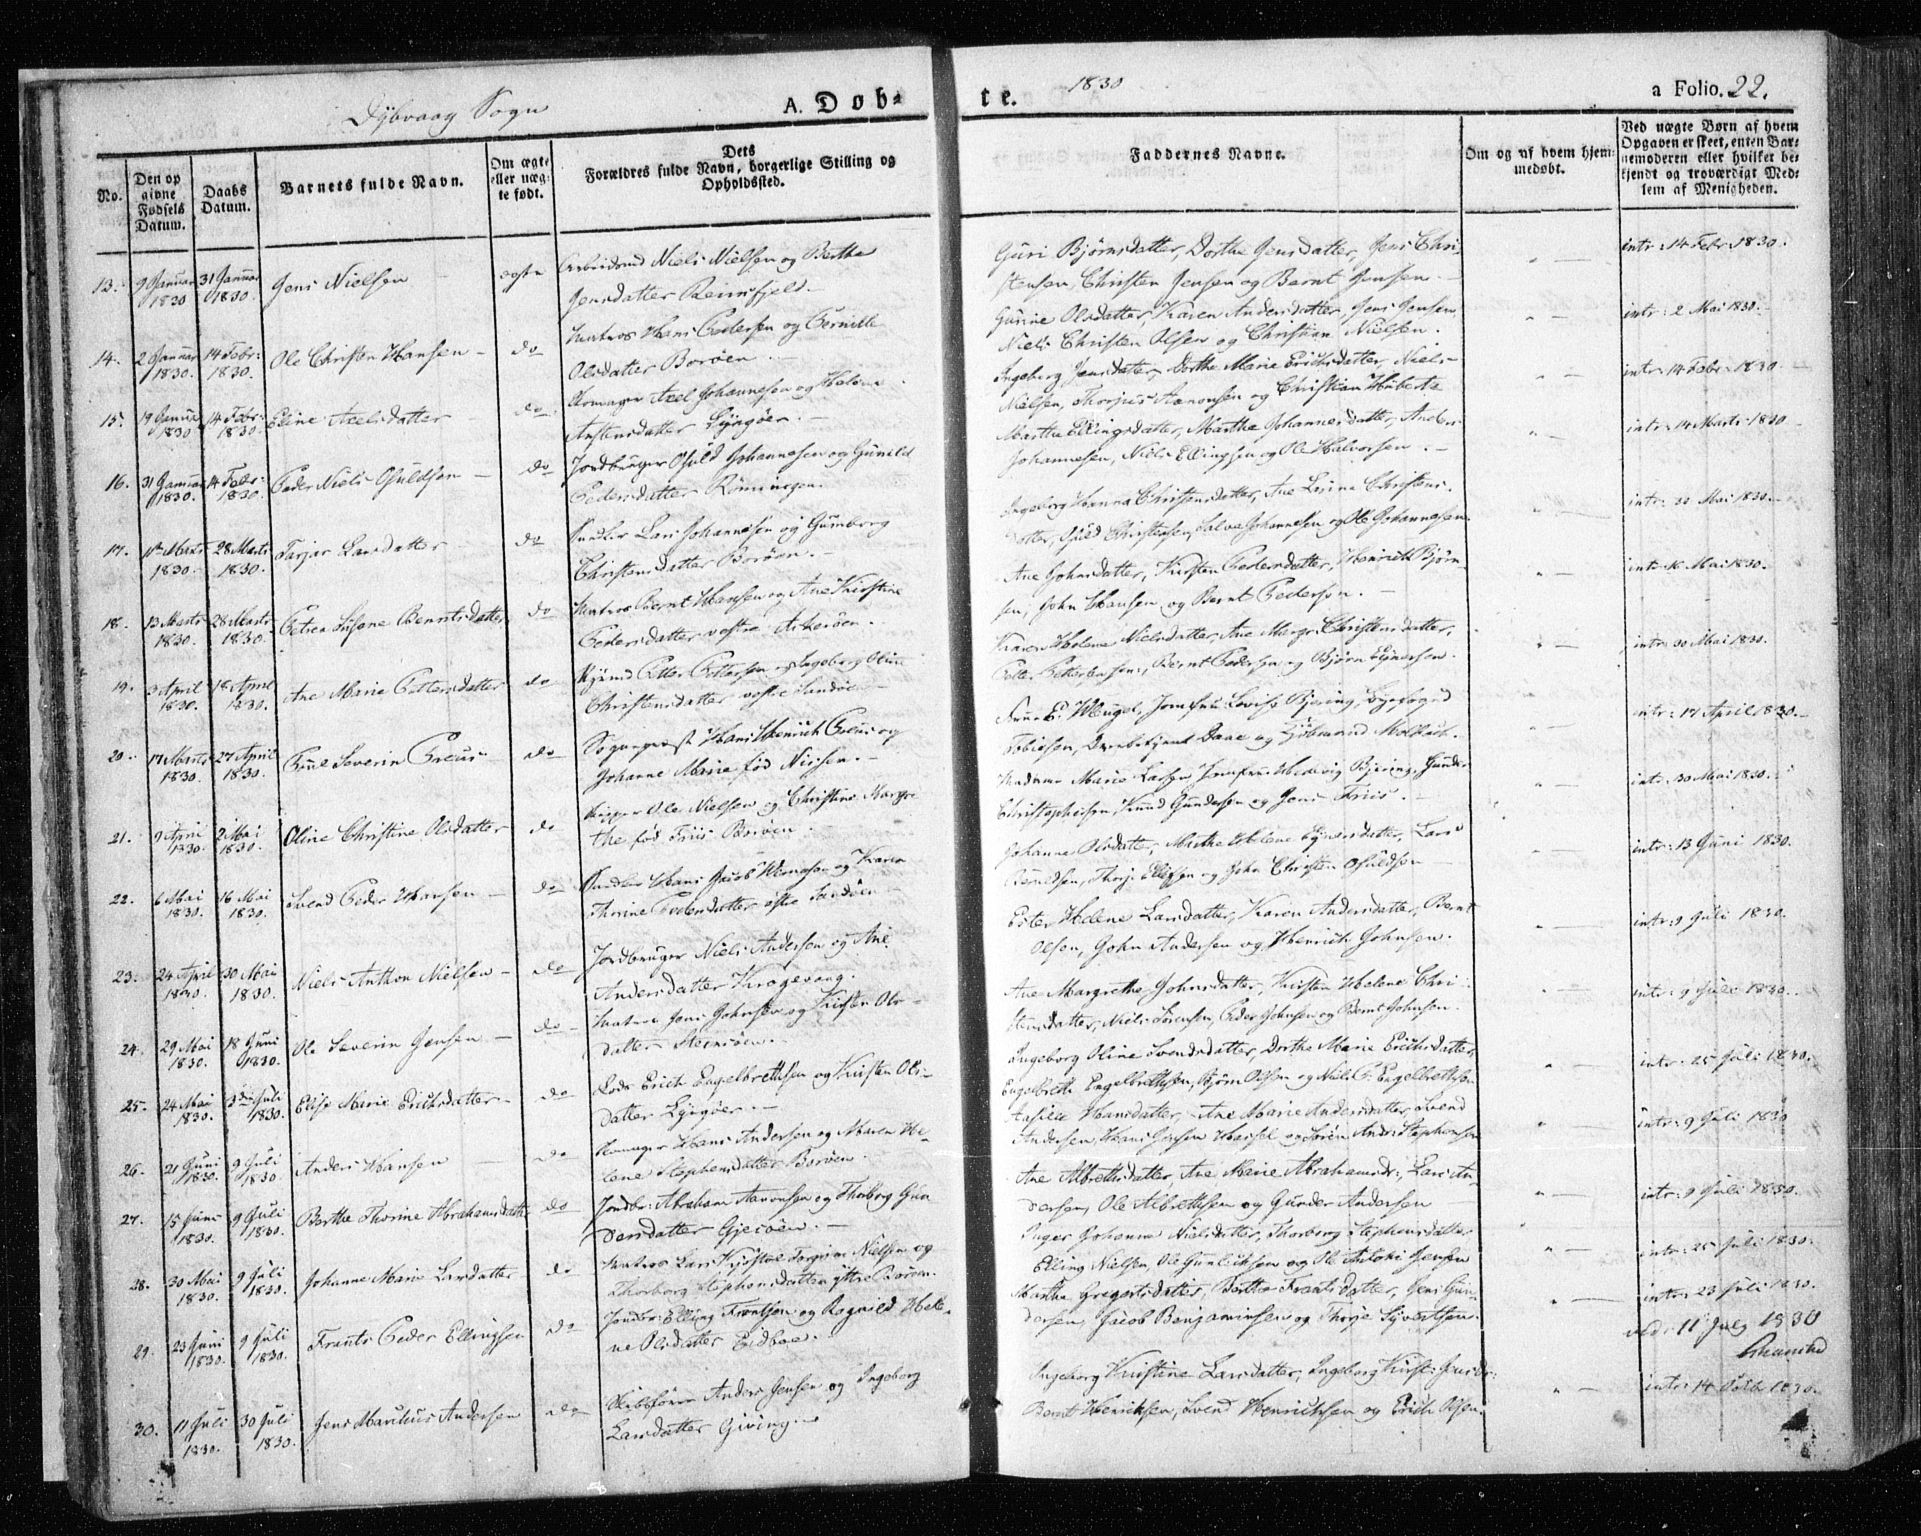 Dybvaag Sogn
A. Døb-
te.
1830
a Folio. 22.
No.
Den opgivne Fødsels Datum.
Daabs Datum.
Barnets fulde Navn.
Om ægte eller uægte født.
Dets Forældres fulde Navn, borgerlige Stilling og Opholdssted.
Faddernes Navne.
Om og af hvem hjemmedøbt.
Ved uægte Børn af hvem Opgaven er skeet, enten Barnemoderen eller hvilker bekjendt og troværdigt Medlem af Menigheden.
13. 9 Januar 1830 31 Januar 1830. Jens Nielsen ægte Arbeidsmd Niels Nielsen og Berthe
Jensdatter
Guri Bjørnsdatter, Dorthe Jensdatter, Jens Chri-
stensen, Christen Jensen og Bernt Jensen.
intr: 14 Febr 1830.
14. 2 Januar 1830. 14 Febr: 1830. Ole Christen Hansen do Matros Hans Pedersen og Pernille
Olsdatter Borøen.
Gurine Olsdatter, Karen Andersdatter, Jens Jensen
Niels Christen Olsen og Christian Nielsen.
intr: 2 Mai 1830.
15. 19 Januar 1830 14 Febr: 1830. Eline Axelsdatter do. Axel Johannesen og Helene
Austensdatter Lyngøer.
Ingeborg Jensdatter, Dorthe Marie Erichsdatter, Niels
Nielsen, Thorjus Aanonsen og Christian
intr: 14 Febr. 1830.
16. 31 Januar 1830. 14 Febr: 1830. Peder Niels Osuldsen do Jordbruger Osuld Johannesen og Gunild
Pedersdatter
Marthe Ellingsdatter, Marthe Johannesdatter, Anders
Johannesen, Niels Ellingsen og Ole Halvorsen.
intr: 14 Marts 1830
17. Marts 1830. 28 Marts 1830. Tarjer Larsdatter do Lars Johannesen og Gumborg
Christensdatter Borøen.
Ingeborg Hanna Christensdatter, Ane Christens-
datter, Osuld Christensen, Salve Johannesen og Ole Johannesen.
intr: Mai 1830.
18. 13 Marts 1830. 28 Marts 1830. Petrea Susane Berntsdatter do Matros Bernt Hansen og Ane Kirstine
Pedersdatter vestre Askerøen.
Ane Johnsdatter, Kirsten Pedersdatter, Henrich Bjørn-
sen, John Hansen og Bernt Pedersen.
intr: 16 Mai 1830.
19. 3 April 1830. 18 April 1830. Ane Marie Pettersdatter do Petter Pettersen og Ingeborg Oline
Christensdatter vestre Sandøen
Karen Helene Nielsdatter, Ane Margr: Christensdatter,
Petter Pettersen, Bernt Pedersen og Bjørn
intr: 30 Mai 1830.
20. 17 Marts 1830. 27 April 1830. Severin Preus do Sogneprest Hans Henrich Preus og
Johanne Marie fød Nissen.
Frue E. Jomfru Lovise Bjering,
Tobiesen, Daae og Kjøbmand
intr: 17 April 1830.
21. 9 April 1830. 2 Mai 1830. Oline Christine Olsdatter do Skipper Ole Nielsen og Christine Margre-
the fød Friis Borøen.
Madame Marie Larsen, Jomfrue Hedevig Bjering, Gunder
Christophersen, Knud Gundersen og Jens Friis.
intr: 30 Mai 1830.
22. 6 Mai 1830. 16 Mai 1830. Svend Peder Hansen do Hans Jacob og Karen
Thorine Pedersdatter østre Sandøen
Johanne Olsdatter, Marthe Helene datter, Lars
Thorje Ellefsen og John Christen Osuldsen
intr: 13 Juni 1830.
23. 24 April 1830. 30 Mai 1830. Niels Anthon Nielsen do Jordbruger Niels Andersen og Ane
Andersdatter Krogevaag.
Ester Helene Larsdatter, Karen Andersdatter, Bernt
Olsen, John Andersen og Henrich Johnsen.
intr: 9 Juli 1830.
24. 29 Mai 1830. 18 Juni 1830. Ole Severin Jensen do Matros Jens Johnsen og Kirsten Ols-
datter Steensøen.
Ane Margrethe Johnsdatter, Kirsten Helene Chri-
stensdatter, Niels Sørensen, Peder Johnsen og Bernt Johnsen.
intr: 9 Juli 1830.
25. 24 Mai 1830. 3die Juli 1830. Elise Marie Erichsdatter do Lods Erich Engelbrethsen og Kirsten Ols-
datter Lyngøer.
Ingeborg Oline Svendsdatter, Dorthe Marie Erichsdatter,
Engelbreth Engelbrethsen, Bjørn Olsen og Niels C. Engelbrethsen
intr: 25 Juli 1830.
26. 21 Juni 1830. 9 Juli 1830. Anders Hansen do Hans Andersen og Maren He-
lene Stephensdatter Borøen.
Aasille Hansdatter, Ane Marie Andersdatter, Svend
Andersen, Hans Jensen og Søren Andr: Stephensen
intr: 9 Juli 1830
27. 15 Juni 1830. 9 Juli 1830. Berthe Thorine Abrahamsdatter do Jordbr: Abraham Aanonsen og Thorborg Gun-
dersdatter Gjesøen.
Ane Albrethsdatter, Ane Marie Abrahamsdr:, Lars An-
dersen, Ole Albrethsen og Gunder Andersen
intr: 9 Juli 1830.
28. 30 Mai 1830. 9 Juli 1830. Johanne Marie Larsdatter do Matros Lars Nielsen og
Thorborg Stephensdatter yttre Borøen.
Inger Johanne Nielsdatter, Thorborg Stephensdatter
Elling Nielsen, Ole Gunleiksen og Ole Jensen
intr: 25 Juli 1830.
29. 23 Juni 1830. 9 Juli 1830. Frants Peder Ellingsen do Jordbr: Elling Frantsen og Ragnild Hele-
ne Olsdatter Eidboe.
Marthe Gregertsdatter, Berthe Frantsdatter, Jens Gun-
dersen, Jacob Benjaminsen og Thorje Syvertsen.
intr: 23 Juli 1830.
11 July 1830
30. 11 Juli 1830. 30 Juli 1830. Jens Marthius Andersen do Skibsfører Anders Jensen og Ingeborg
Larsdatter Giving
Ingeborg Kirstine Larsdatter, Ingeborg Kirst: Jensdr:
Bernt Henrichsen, Svend Henrichsen og Erich Olsen.
intr: 14 1830.